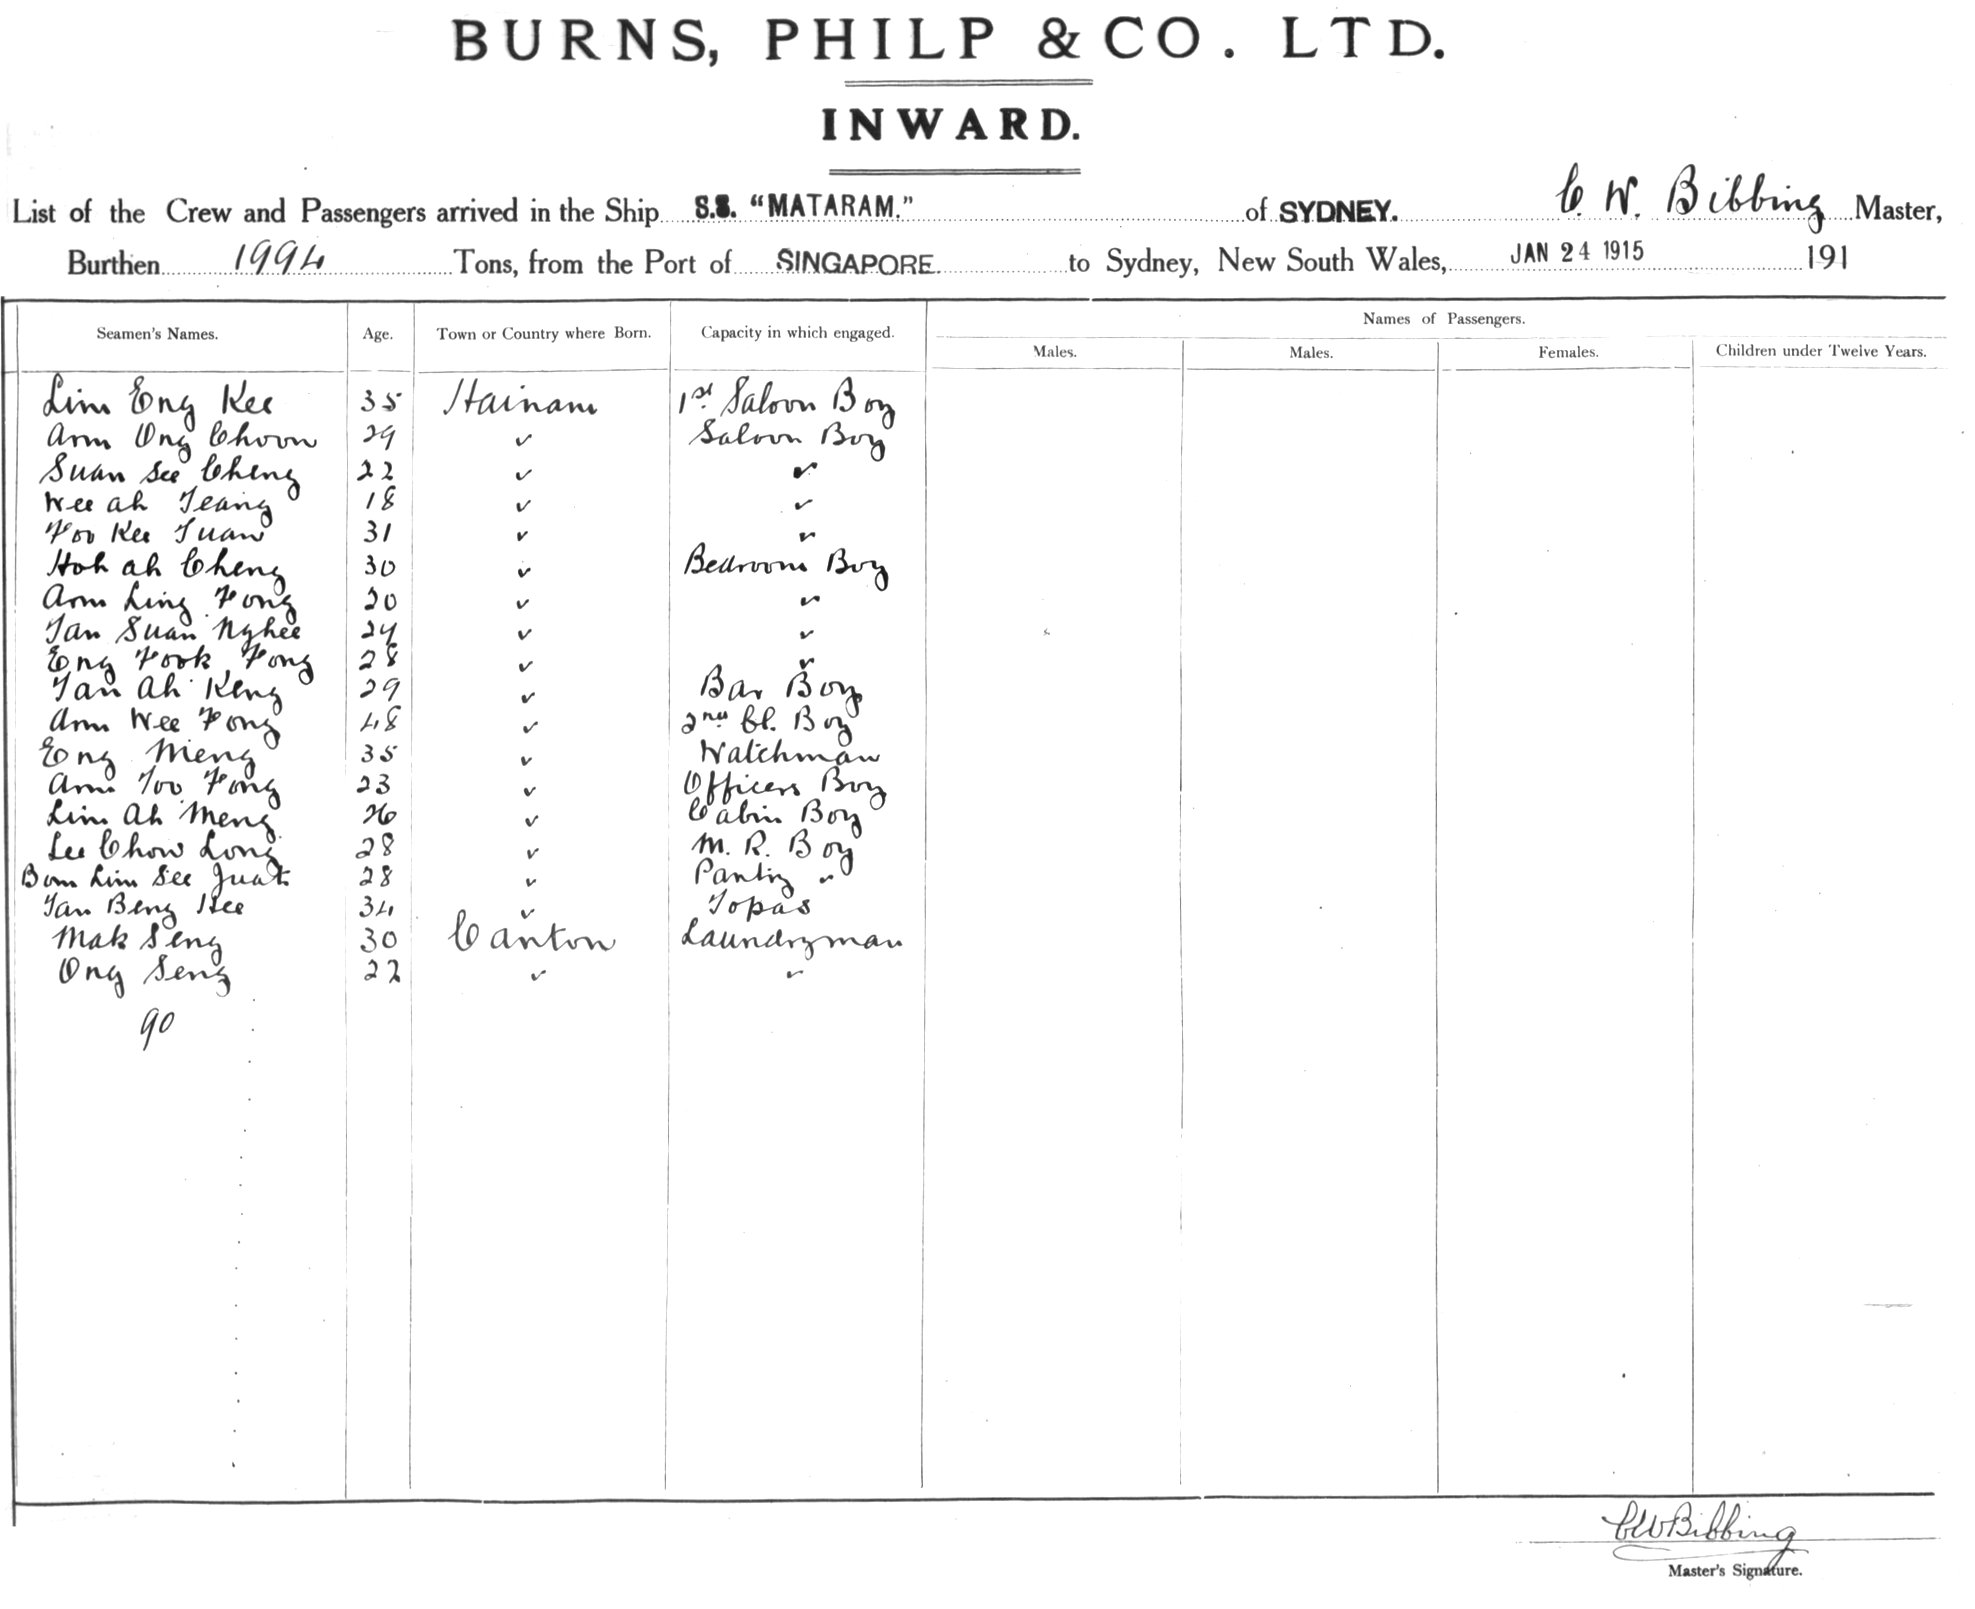 BURNS, PHILP & CO. LTD.
INWARD.
List of the Crew and Passengers arrived in the Ship S.S. "MATARAM." of SYDNEY. C. W. Bibbing Master,
Burthen 1994 Tons, from the Port of SINGAPORE. to Sydney, New South Wales, JAN 24 1915 191
Names of Passengers.
Seamen's Names. Age. Town or Country where Born. Capacity in which engaged. Males. Males. Females. Children under Twelve Years.
Lim Eng Kee 35 Hainam 1st. Saloon Boy
Arm Ong Choon 29 " Saloon Boy
Suan See Cheng 22 " "
Wee ah Teang 18 " "
Foo Kee Tuan 31 " "
Hoh ah Cheng 30 " Bedroom Boy
Arm Ling Fong 20 " "
Tan Suan Nghee 24 " "
Eng Fook Fong 28 " "
Tan Ah Keng 29 " Bar Boy
Arm Wee Fong 48 " 2nd Cl. Boy
Eng Meng 35 " Watchman
Arm Too Fong 23 " Officers Boy
Lim Ah Meng 26 " Cabin Boy
Lee Chow Long 28 " M. R. Boy
Bom Lim See Juat 28 " Pantry "
Tan Beng Hee 34 " Topas
Mak Seng 30 Canton Laundryman
Ong Seng 22 " "
90
CWBibbing
Master's Signature.